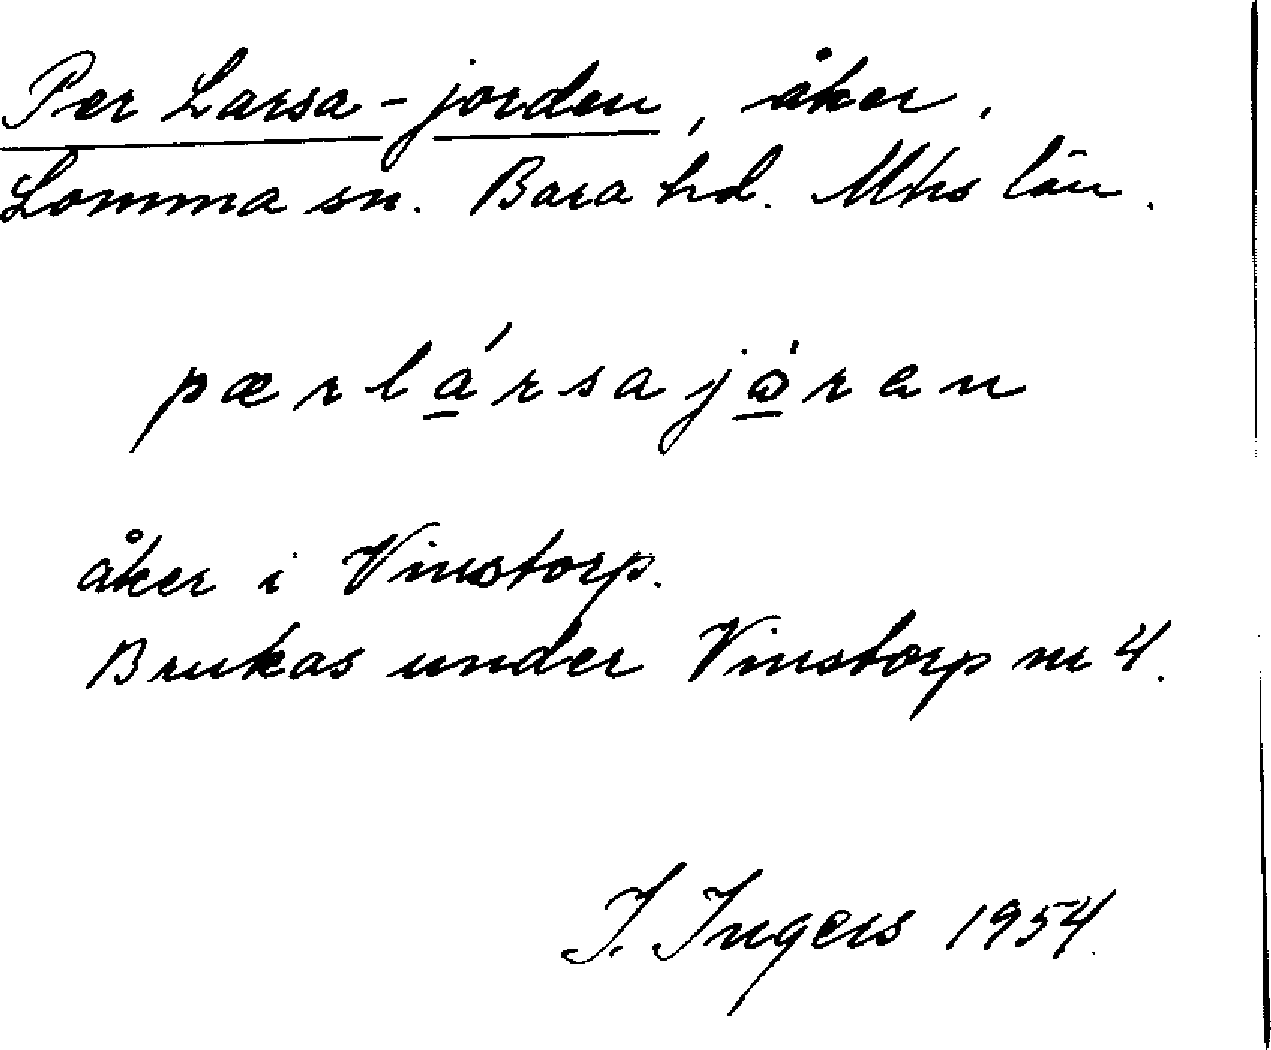 Per Larsa-jorden, åker.
Lomma sn. Bara hd. Mhs län.
pærlársajǫ́ran
åker i Vinstorp.
Brukas under Vinstorp nr 4.
I. Ingers 1954.